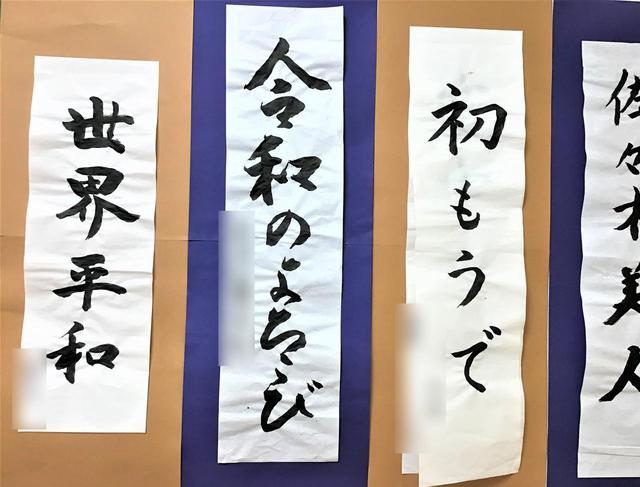 佐々木美人
初もうで
令和のよろこび
世界平和